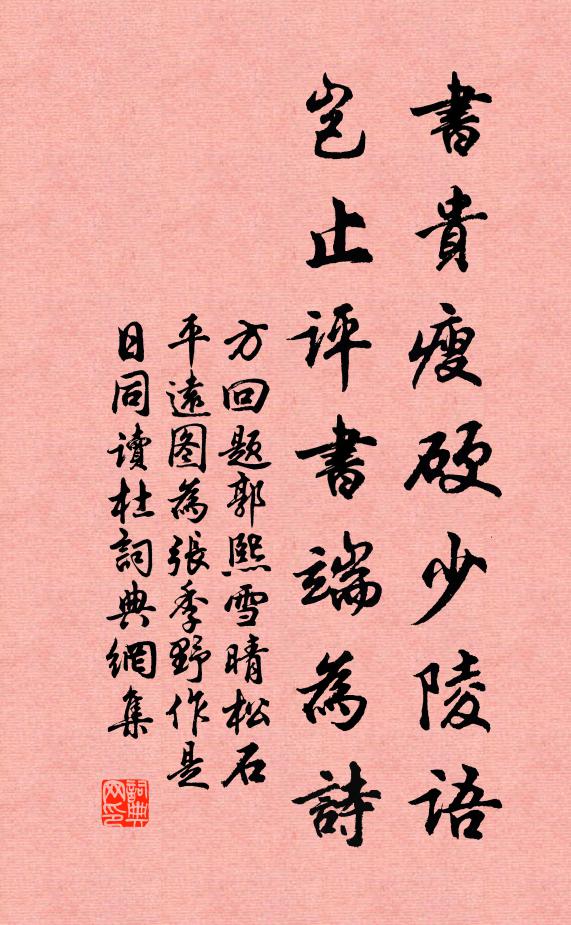 書貴瘦硬少陵語
豈止評書端為詩
方回題郭熙雪晴松石
平遠图為張季野作是
日同讀杜詞典網集
詞典網印